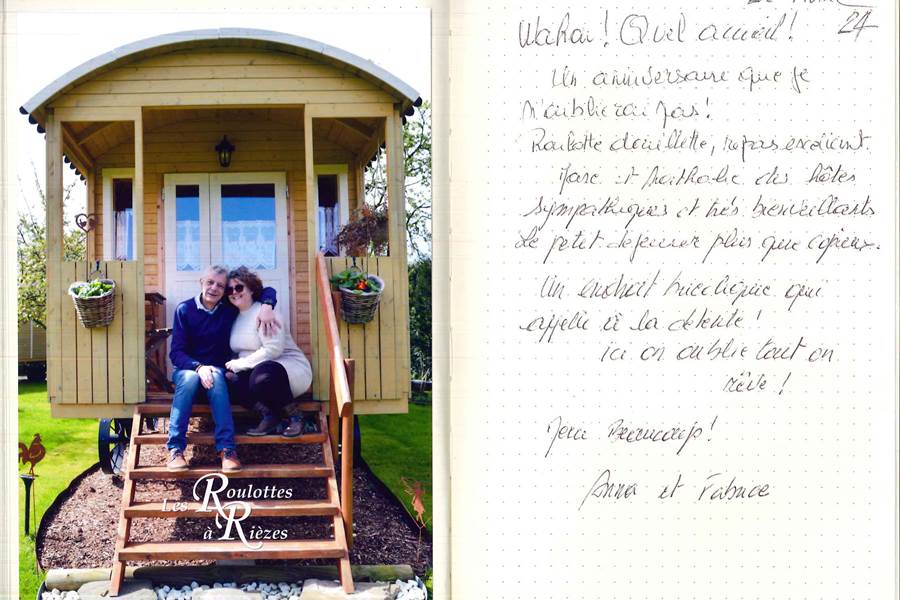 Les Roulottes
à Rièzes
24
Wahou ! Quel accueil !
Un anniversaire que je
n'oublierai pas !
Roulotte douillette, repas excellent.
Marc et Nathalie des hôtes
sympathiques et très bienveillants
Le petit dejeuner plus que copieux.
Un endroit bucolique qui
appelle à la détente !
ici on oublie tout on
rêve !
Merci Beaucoup !
Anna et Fabrice